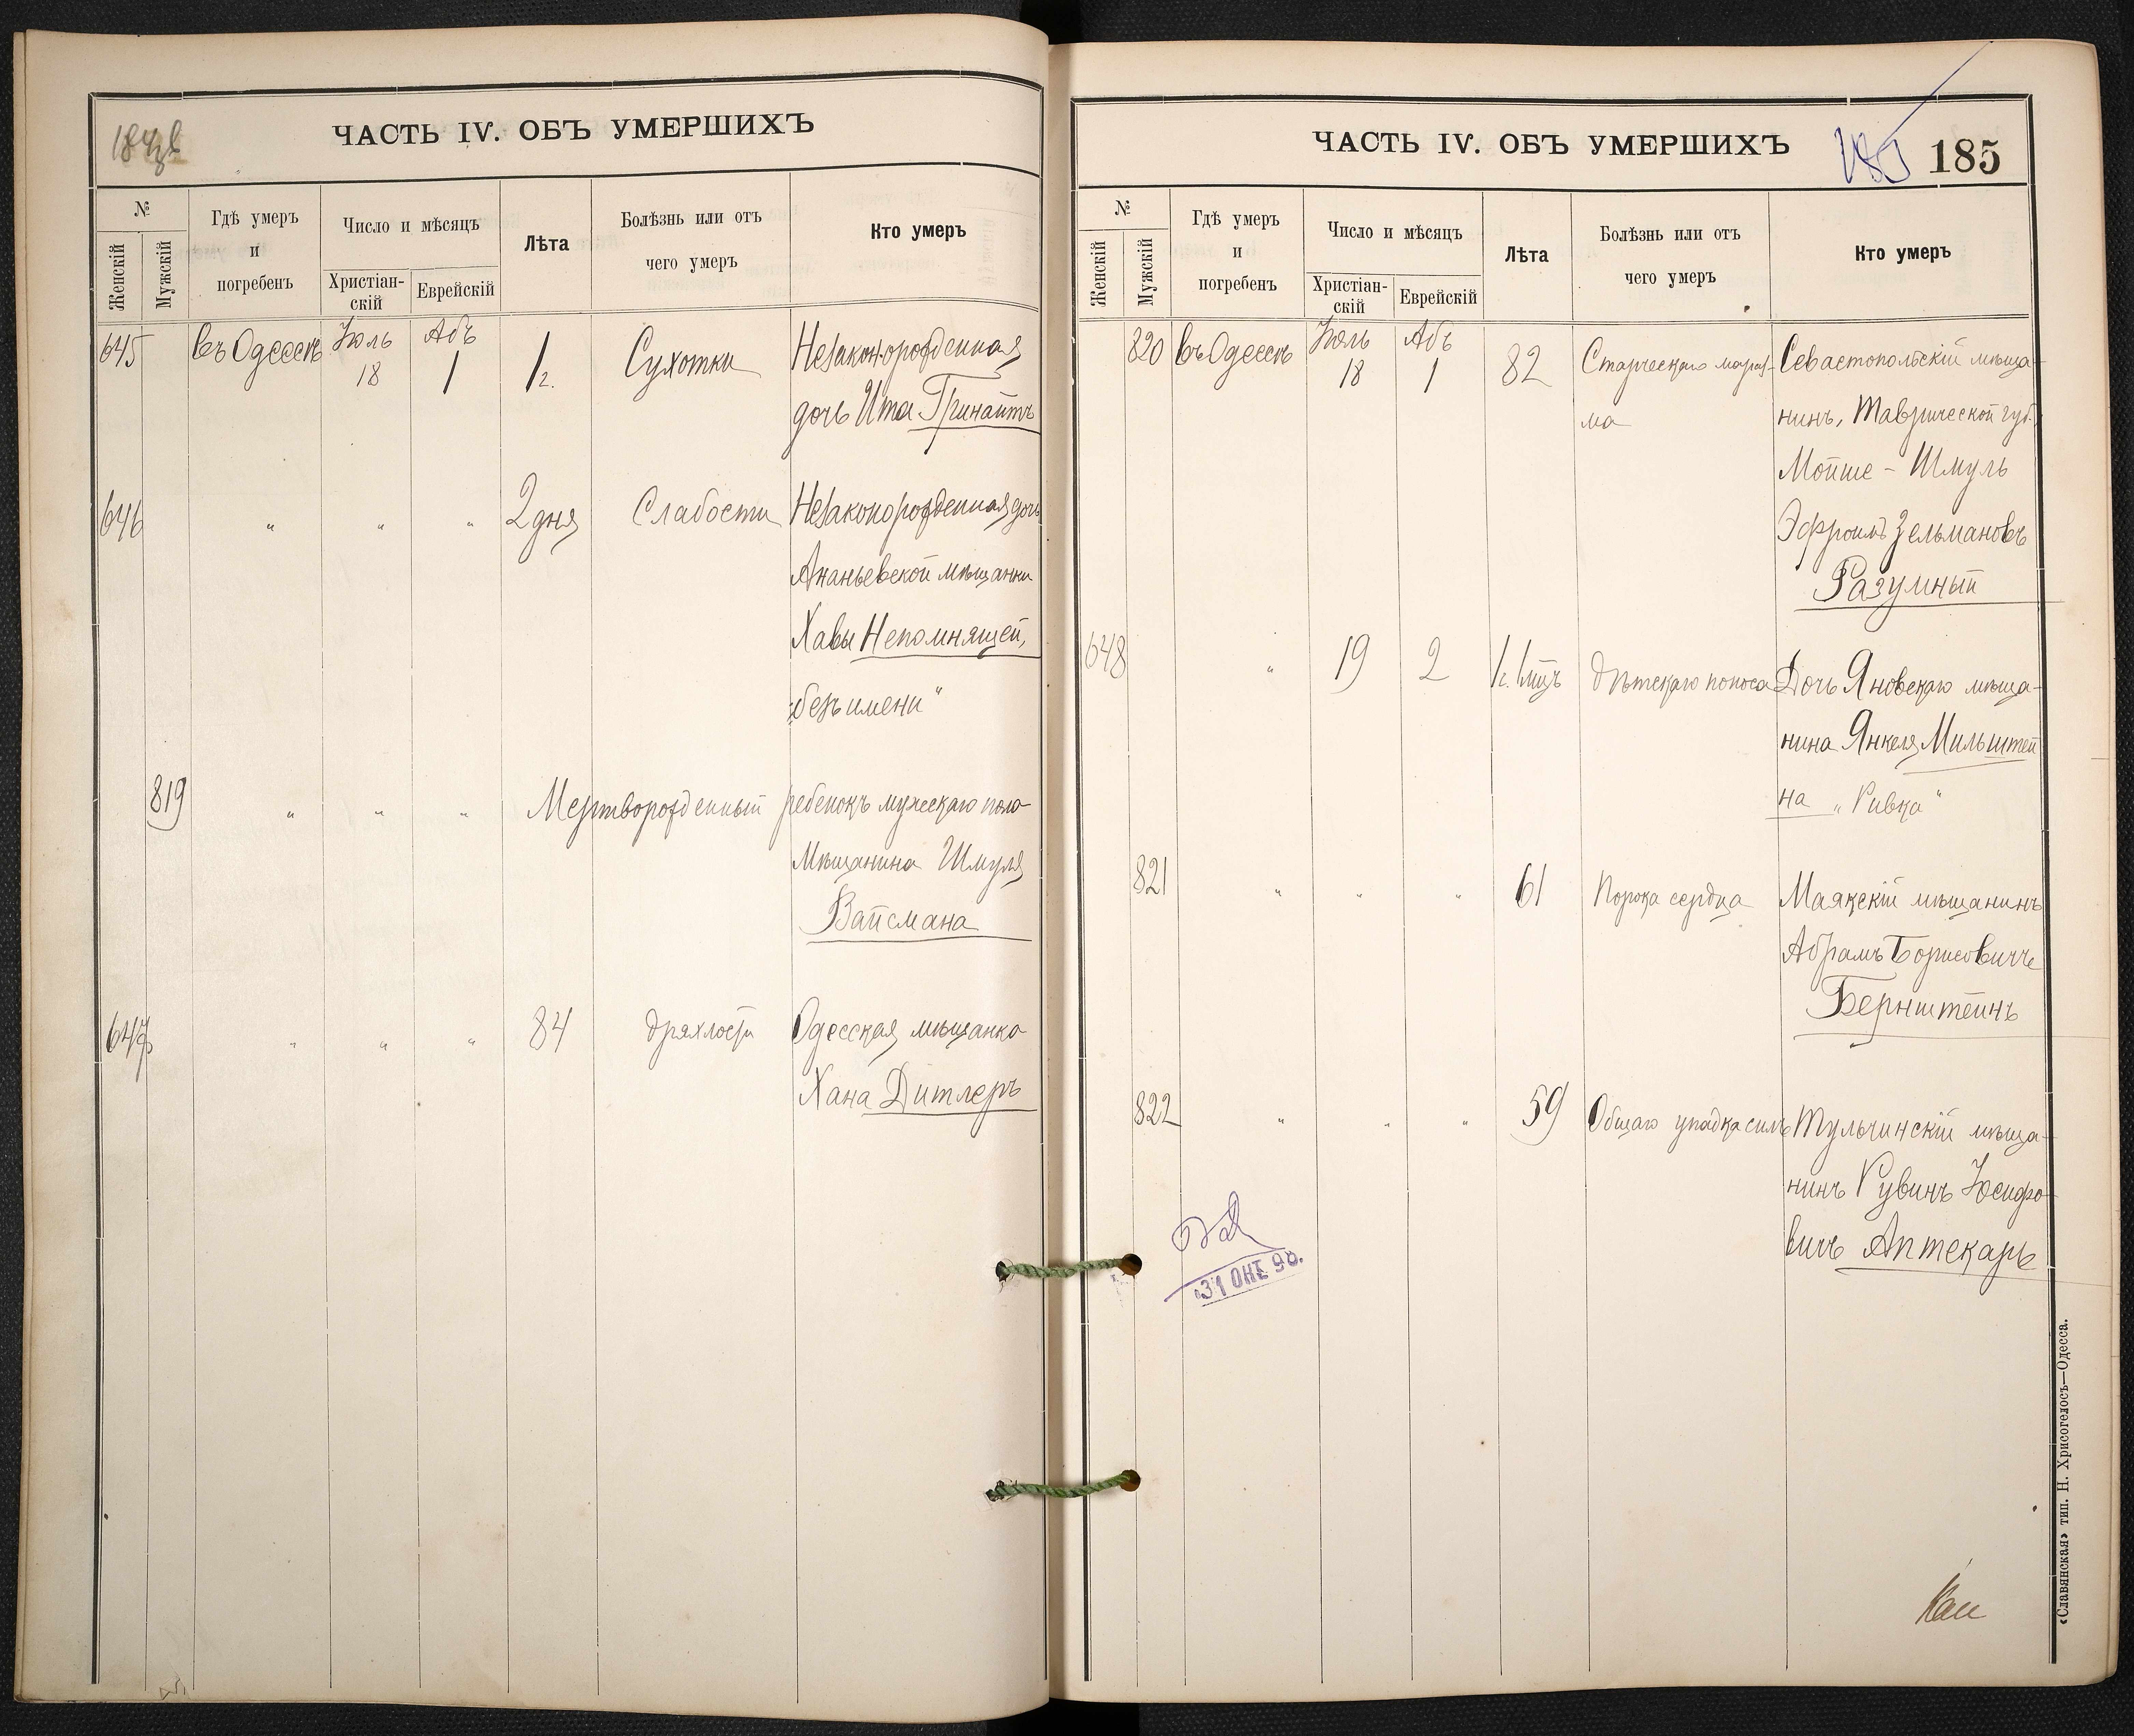 ЧАСТЬ IV. ОБЪ УМЕРШИХЪ
№
Женскій
Мужскій
Гдѣ умеръ
и
погребенъ
Число и мѣсяцъ
Христіан-
скій
Еврейскій
Лѣта
Болѣзнь или отъ
чего умеръ
Кто умеръ
645 въ Одессѣ Іюль 18 Абъ 1 1 г. Сухотки Незаконорожденная
дочь Ита Гринайтъ
646 " " " 2 дня Слабости Незаконорожденная дочь
Ананьевской мѣщанки
Хавы Непомнящей,
"безъ имени"
819 " " " Мертворожденный ребенокъ мужескаго пола
Мѣщанина Шмуля
Вайсмана
647 " " " 84 дряхлости Одесская мѣщанка
Хана Дитлеръ
ЧАСТЬ IV. ОБЪ УМЕРШИХЪ
185 185
№
Женскій
Мужскій
Гдѣ умеръ
и
погребенъ
Число и мѣсяцъ
Христіан-
скій
Еврейскій
Лѣта
Болѣзнь или отъ
чего умеръ
Кто умеръ
820 въ Одессѣ Іюль 18 Абъ 1 82 Старческаго мараз- Севастопольскій мѣща-
ма нинъ, Таврической губ.
Мойше - Шмуль
Эфроимъ Зельмановъ
Разумный
648 " 19 2 1 г. 1 мцъ дѣтскаго поноса Дочь Яновскаго мѣща-
нина Янкеля Мильштей
на „Ривка"
821 " " " 61 Порока сердца Маякскій мѣщанинъ
Абрамъ Борисовичъ
Бернштейнъ
822 " " " 59 Общаго упадка силъ Тульчинскій мѣща-
нинъ Рувинъ Іосифо-
вичъ Аптекарь
31 ОКТ 98.
«Славянская» тип. Н. Хрисогелосъ—Одесса.